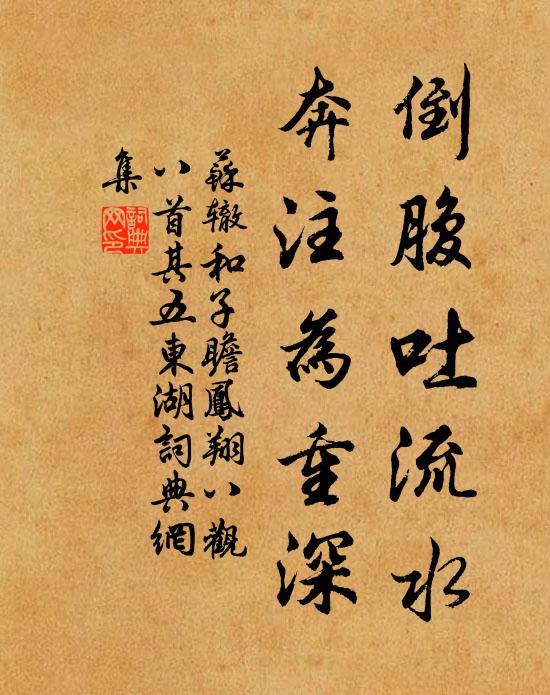 倒腹吐流水
奔注為重深
蘇轍和子瞻鳳翔八觀
八首其五東湖詞典網
集
詞典網印